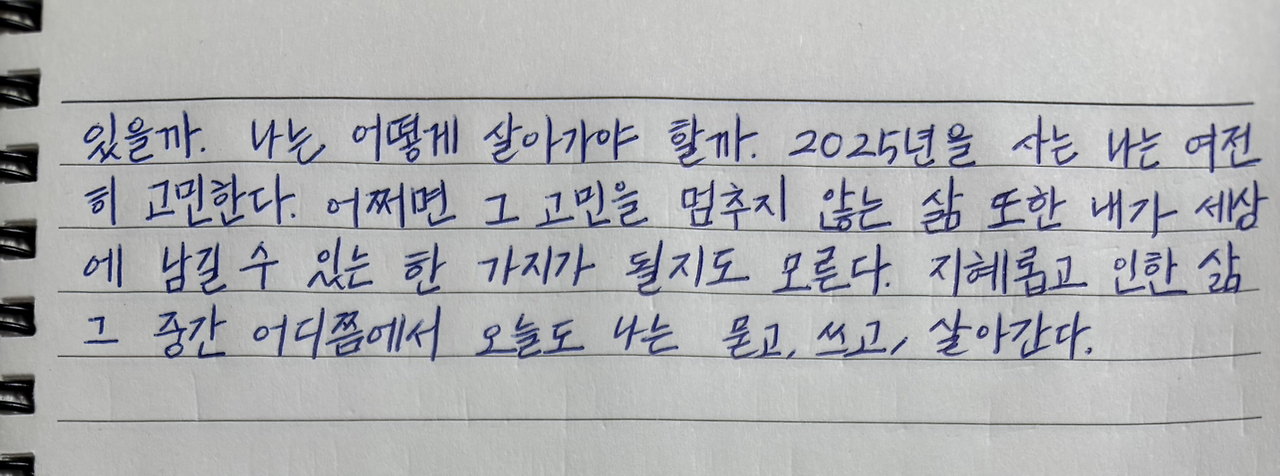 있을까. 나는 어떻게 살아가야 할까. 2025년을 사는 나는 여전
히 고민한다. 어쩌면 그 고민을 멈추지 않는 삶 또한 내가 세상
에 남길 수 있는 한 가지가 될지도 모른다. 지혜롭고 인한 삶
그 중간 어디쯤에서 오늘도 나는 묻고, 쓰고, 살아간다.